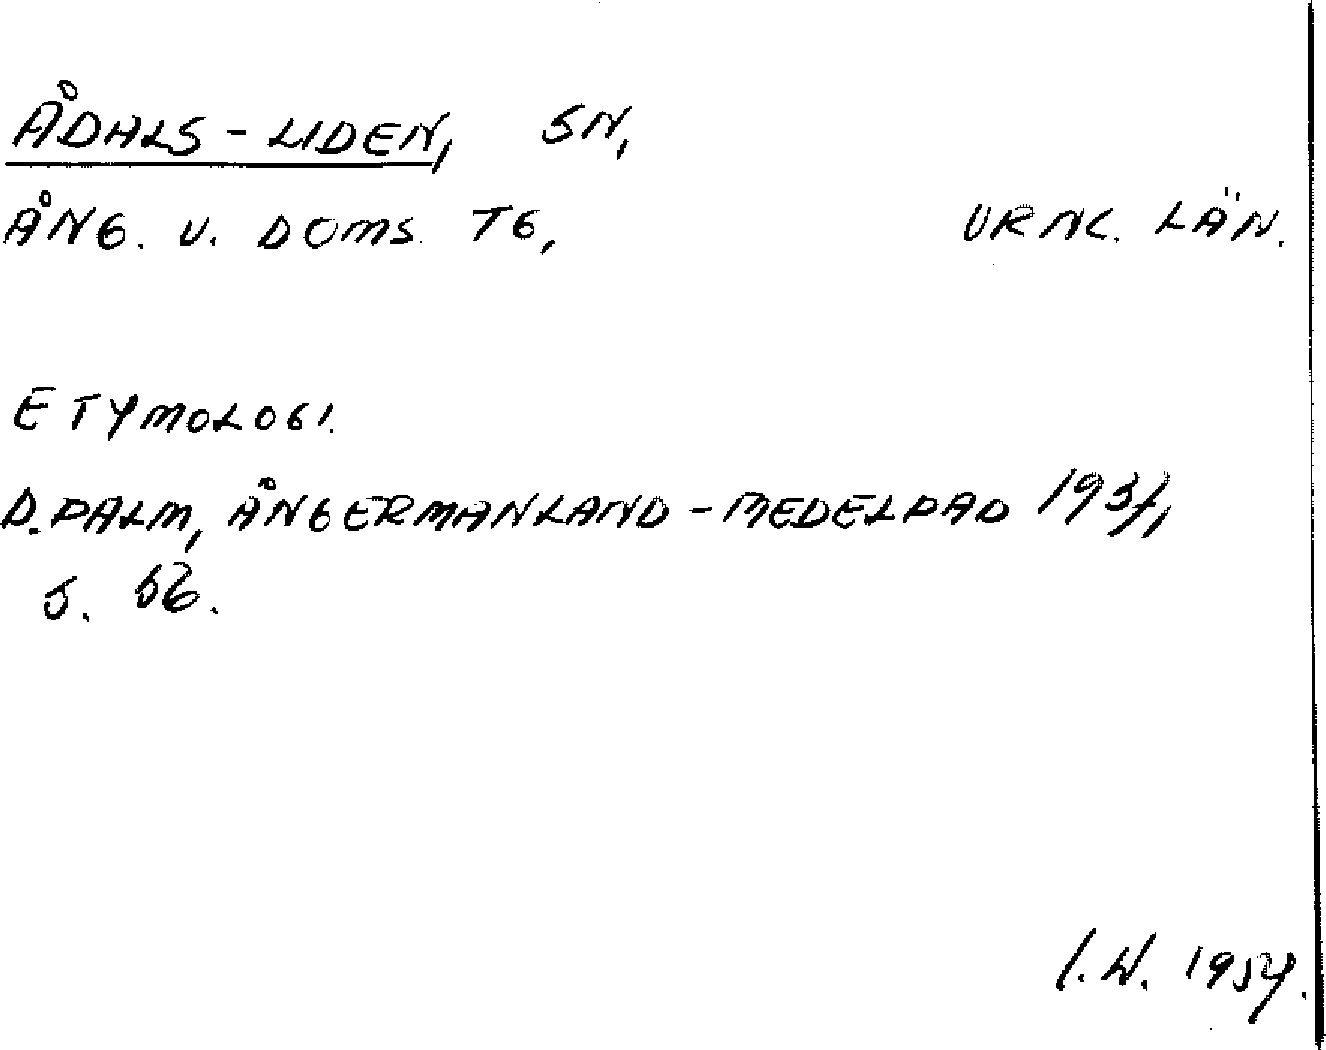 ÅDALS-LIDEN, SN,
ÅNG. V. DOMS. TG, VRNL. LÄN.
ETYMOLOGI.
D. PALM, ÅNGERMANLAND-MEDELPAD
S. 56.
I.W. 1954.